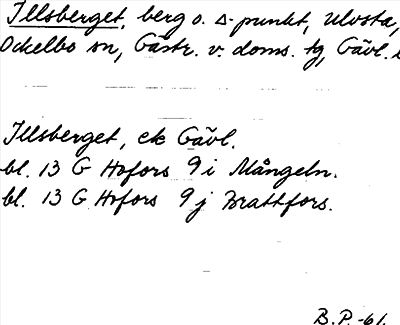 Illsberget, berg o. Δ-punkt, Ulvsta,
Ockelbo sn, Gästr. v. doms. tg, Gävl.
Illsberget, ek Gävl.
bl. 13 G Hofors 9 i Mångeln.
bl. 13 G Hofors 9 j Brattfors.
B.P. -61.